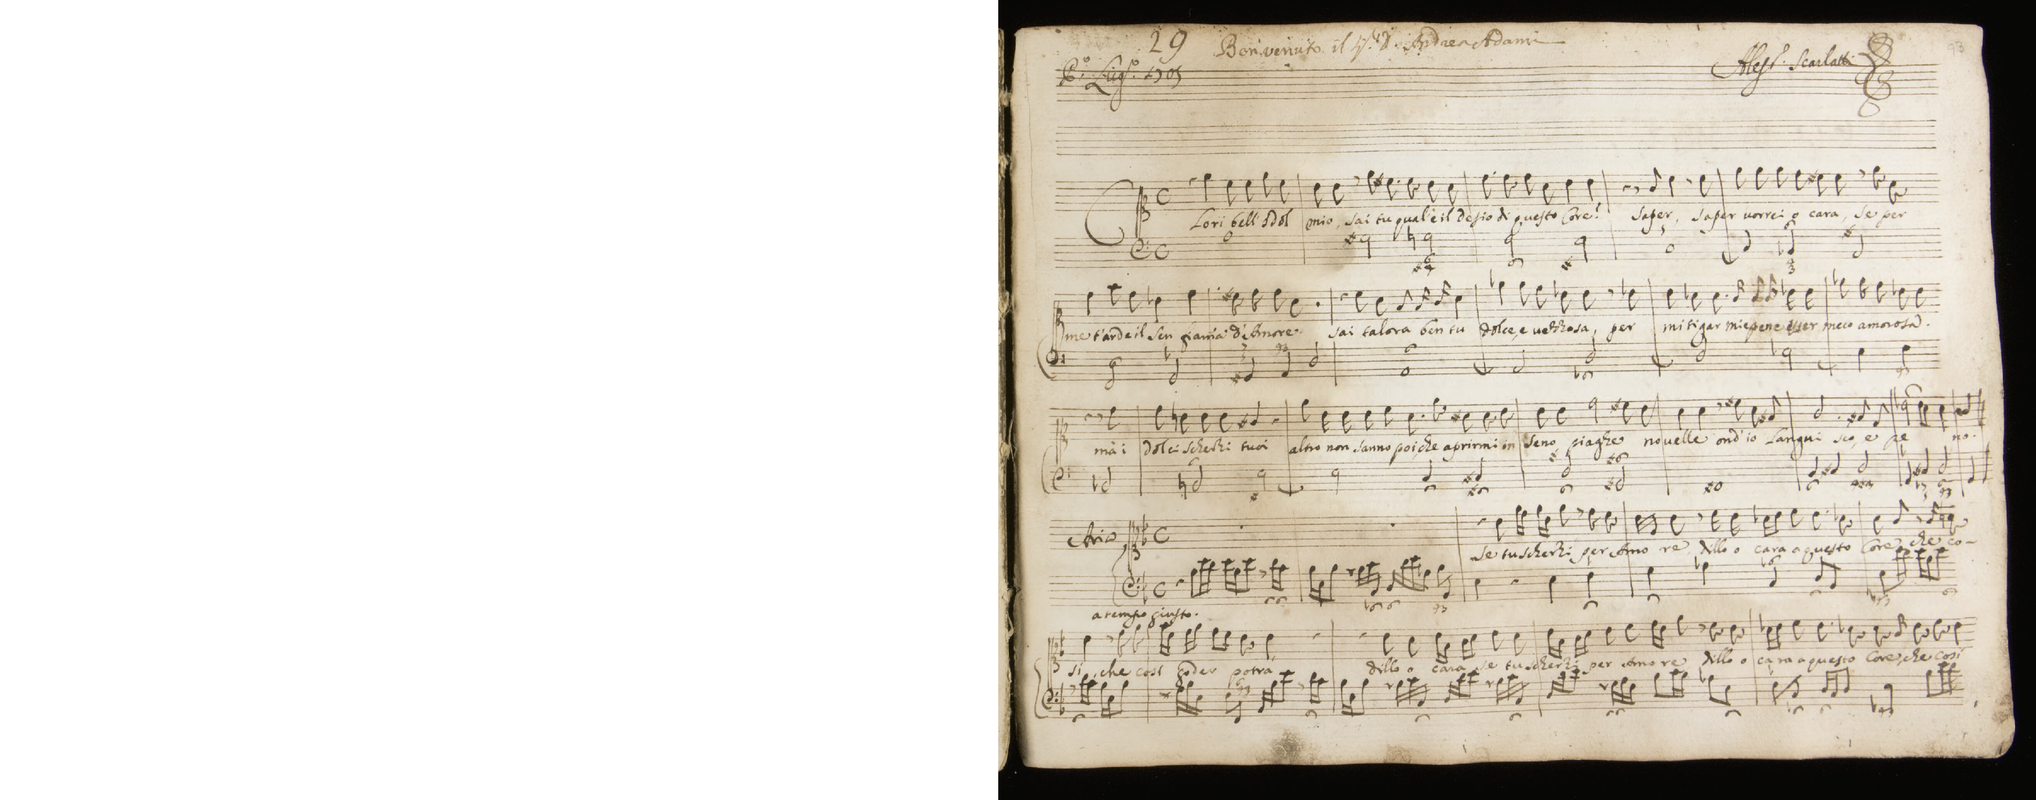 29 Ben venuto il Sr. D. Andrea Adami
Po. Lugo. 1705
Aless. Scarlatti
93
Lori bell' Idol mio, sai tu qual'è il desio di questo Core? saper, saper vorrei o cara, se per
me t'arde il sen fiamma d'Amore. sai talora ben tu dolce, e vezzosa, per mitigar mie pene esser meco amorosa.
mà i dolci scherzi tuoi altro non sanno poi, che aprirmi in seno piaghe novelle ond'io Langui sco, e pe no.
Aria
se tu scherzi per Amo re Dillo o cara a questo Core, che co-
a tempo giusto.
sì, che così goder potrà Dillo o cara se tu scherzi per Amo re Dillo o cara a questo Core, che così